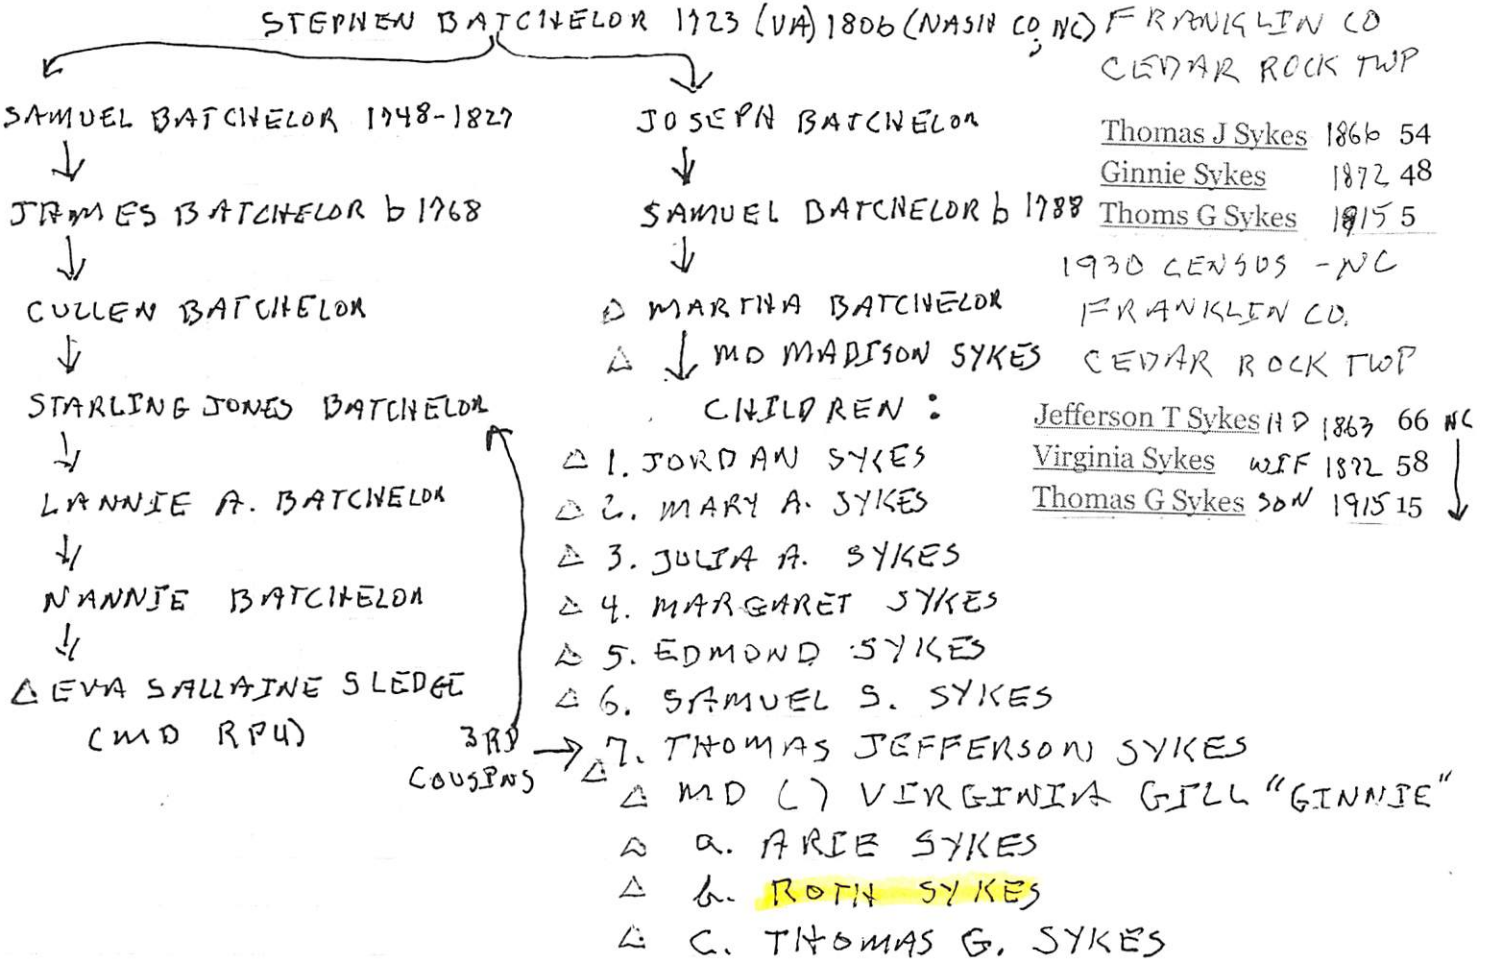 STEPHEN BATCHELOR 1723 (VA) 1806 (NASH CO, NC)
SAMUEL BATCHELOR 1748-1827
JAMES BATCHELOR b 1768
CULLEN BATCHELOR
STARLING JONES BATCHELOR
LANNIE A. BATCHELOR
NANNIE BATCHELOR
EVA SALLAINE SLEDGE
(MD RPU)
3RD
COUSINS
JOSEPH BATCHELOR
SAMUEL BATCHELOR b 1788
MARTHA BATCHELOR
MD MADISON SYKES
CHILDREN:
1. JORDAN SYKES
2. MARY A. SYKES
3. JULIA A. SYKES
4. MARGARET SYKES
5. EDMOND SYKES
6. SAMUEL S. SYKES
7. THOMAS JEFFERSON SYKES
MD ( ) VIRGINIA GILL "GINNIE"
a. ARIE SYKES
b. ROTH SYKES
C. THOMAS G. SYKES
FRANKLIN CO
CEDAR ROCK TWP
Thomas J Sykes 1866 54
Ginnie Sykes 1872 48
Thoms G Sykes 1915 5
1930 CENSUS - NC
FRANKLIN CO.
CEDAR ROCK TWP
Jefferson T Sykes HD 1863 66 NC
Virginia Sykes WIF 1872 58
Thomas G Sykes SON 1915 15